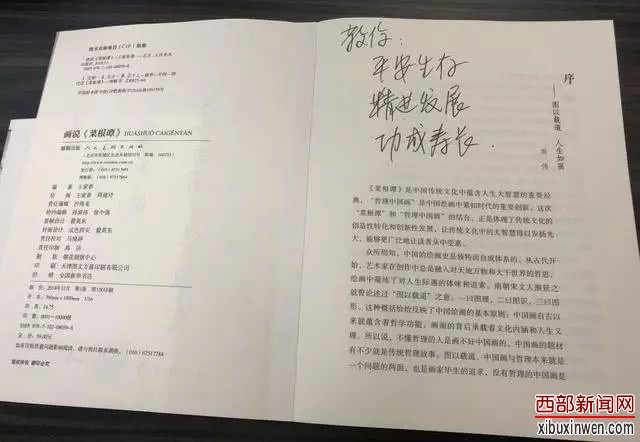 图书在版编目（CIP）数据
画说《菜根谭》 HUÀSHUŌ CÀIGĒNTÁN
编辑出版 人民美术出版社
编 著 王家春
责任印制 高 洁
制 版 朝花制版中心
印 刷 天津图文方嘉印刷有限公司
经 销 全国新华书店
开 本：700mm×1000mm 1/16
印 张：14.75
印 数：0001—10000册
定 价：59.00元
版权所有 翻印必究
教你：
平安生存
精进发展
功成寿长
序
——图以载道 人生如画
《菜根谭》是中国传统文化中蕴含人生大智慧的重要经
典，“哲理中国画”是中国绘画中紧扣时代的重要创新，这次
“菜根谭”和“哲理中国画”的结合，正是体现了传统文化的
创造性转化和创新性发展，让传统文化中的大智慧得以发扬光
大，能够更广泛地让读者从中受惠。
众所周知，中国的绘画史是独特而自成体系的。从古民开
始，艺术家在创作中总是融入对天地万物和大千世界的哲思，
绘画中凝练了对人生际遇的体味和追索。南朝宋文人颜延之
就曾论述过“图以载道”之意，一曰图理，二曰图识，三曰图
形。这种概括恰恰互映了中国绘画的基本原则：中国画自古以
来就蕴含着哲学功能，画面的背后承载着文化内涵和人生义
理。所以说，不懂哲理的人是画不好中国画的，中国画的题材
有不少就是传统哲理故事。图以载道，中国画与哲理本来就是
一个问题的两面，也是画家毕生的追求，没有哲理的中国画是
西部新闻网
xibuxinwen.com